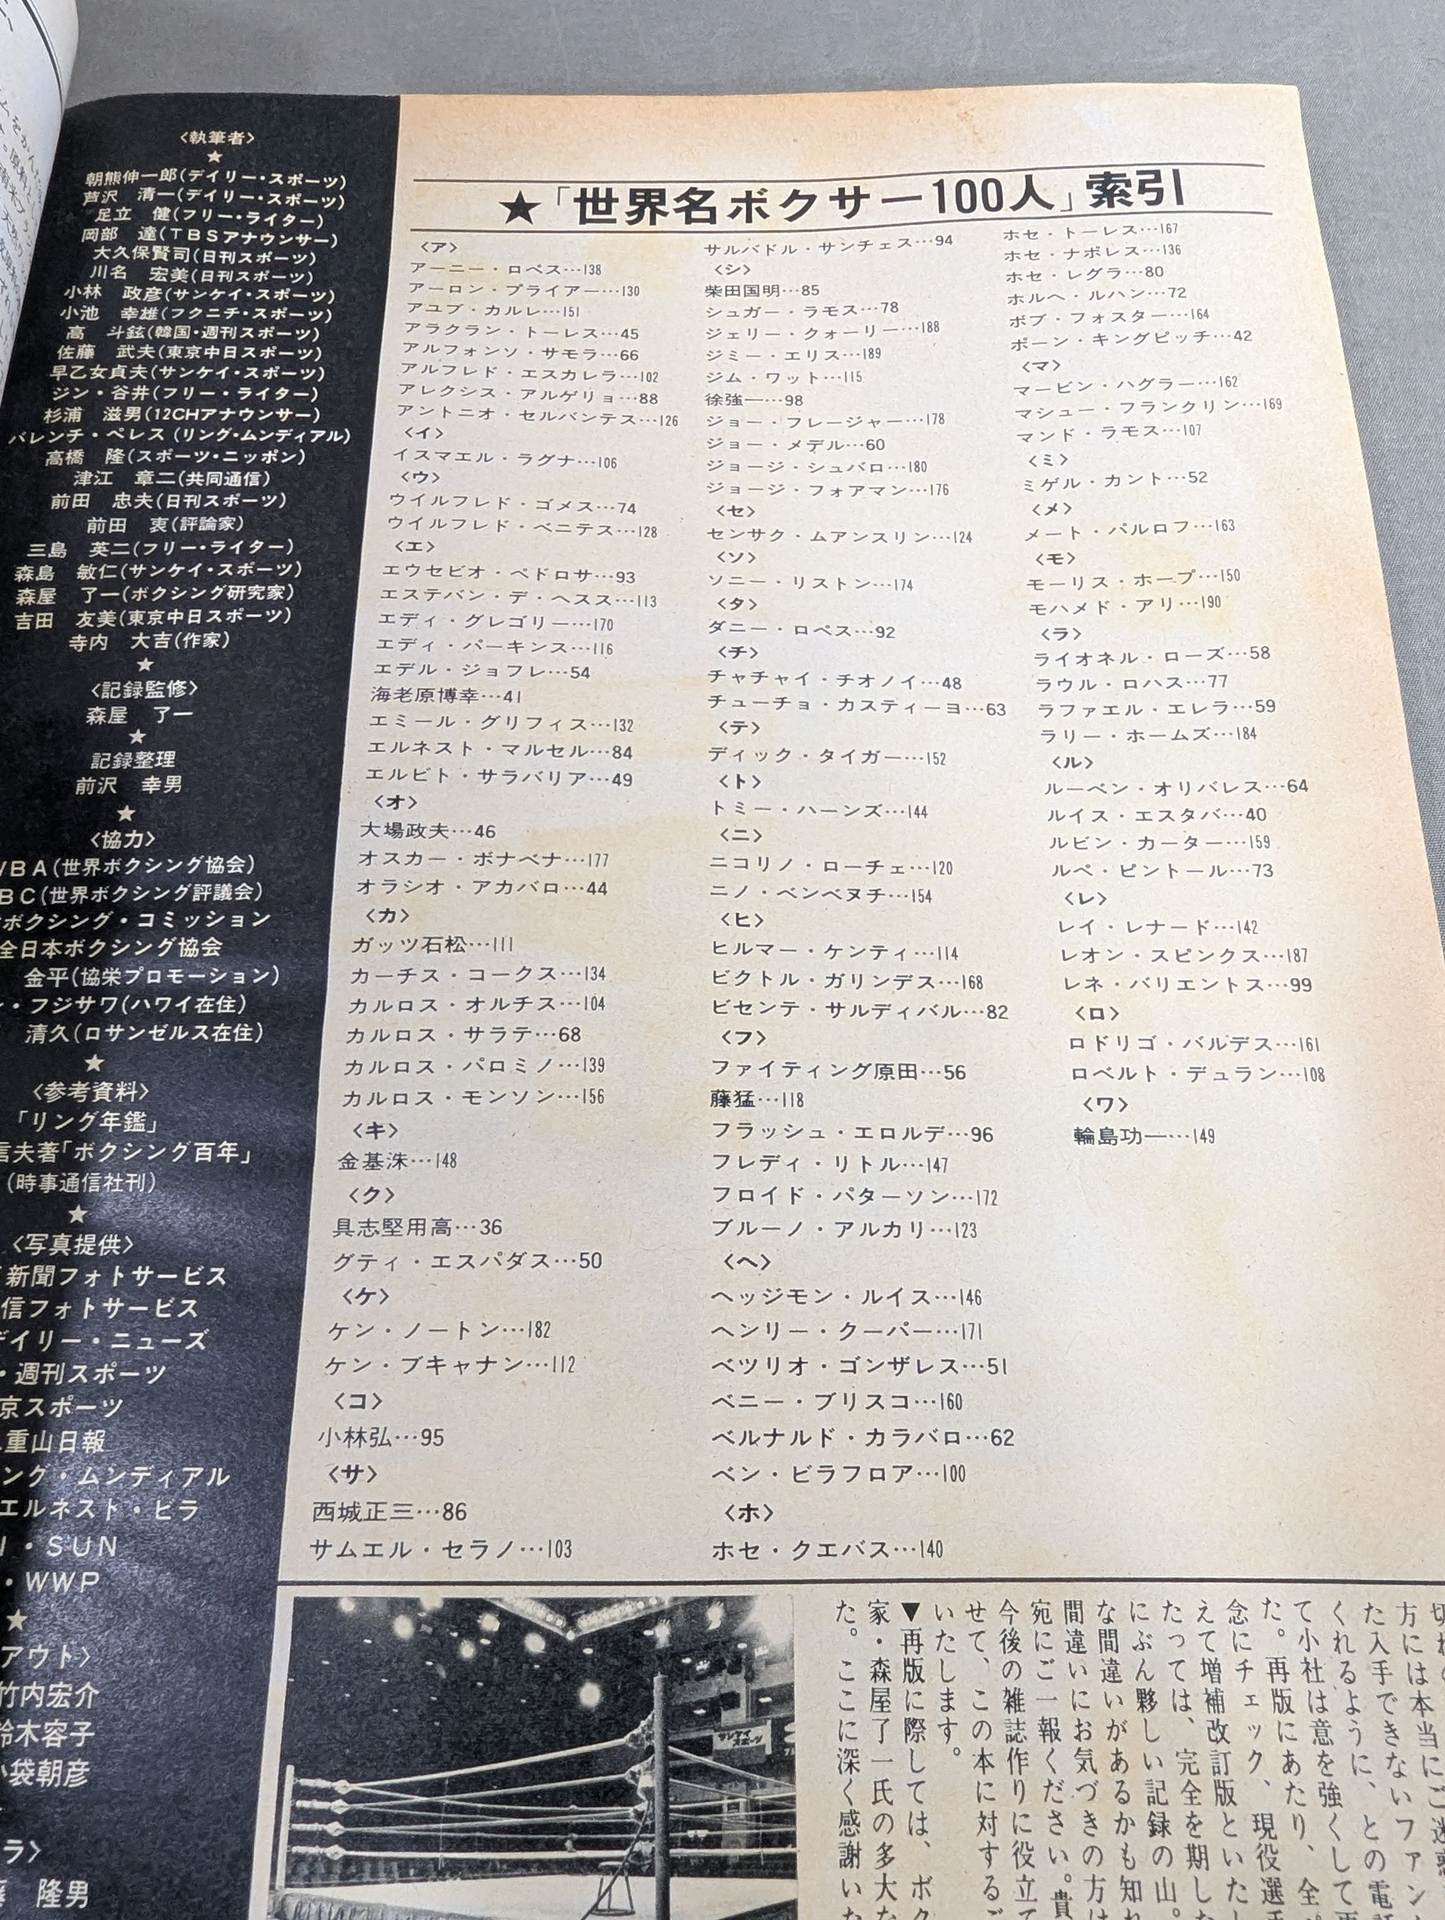 〈執筆者〉
★
朝熊伸一郎(デイリー・スポーツ)
芦沢 清一(デイリー・スポーツ)
足立 健(フリー・ライター)
岡部 達(TBSアナウンサー)
大久保賢司(日刊スポーツ)
川名 宏美(日刊スポーツ)
小林 政彦(サンケイ・スポーツ)
小池 幸雄(フクニチ・スポーツ)
高 斗鉉(韓国・週刊スポーツ)
佐藤 武夫(東京中日スポーツ)
早乙女貞夫(サンケイ・スポーツ)
ジン・谷井(フリー・ライター)
杉浦 滋男(12CHアナウンサー)
バレンチ・ペレス(リング・ムンディアル)
高橋 隆(スポーツ・ニッポン)
津江 章二(共同通信)
前田 忠夫(日刊スポーツ)
前田 衷(評論家)
三島 英二(フリー・ライター)
森島 敏仁(サンケイ・スポーツ)
森屋 了一(ボクシング研究家)
吉田 友美(東京中日スポーツ)
寺内 大吉(作家)
★
〈記録監修〉
森屋 了一
★
記録整理
前沢 幸男
★
〈協力〉
WBA(世界ボクシング協会)
BC(世界ボクシング評議会)
ボクシング・コミッション
全日本ボクシング協会
金平(協栄プロモーション)
・フジサワ(ハワイ在住)
清久(ロサンゼルス在住)
★
〈参考資料〉
「リング年鑑」
信夫著「ボクシング百年」
(時事通信社刊)
★
〈写真提供〉
新聞フォトサービス
信フォトサービス
デイリー・ニューズ
・週刊スポーツ
京スポーツ
重山日報
ング・ムンディアル
エルネスト・ヒラ
I・SUN
・WWP
★
アウト〉
竹内宏介
鈴木容子
小袋朝彦
ラ〉
隆男
★「世界名ボクサー100人」索引
〈ア〉
アーニー・ロペス…138
アーロン・プライアー…130
アユブ・カルレ…151
アラクラン・トーレス…45
アルフォンソ・サモラ…66
アルフレド・エスカレラ…102
アレクシス・アルゲリョ…88
アントニオ・セルバンテス…126
〈イ〉
イスマエル・ラグナ…106
〈ウ〉
ウイルフレド・ゴメス…74
ウイルフレド・ベニテス…128
〈エ〉
エウセビオ・ペドロサ…93
エステバン・デ・ヘスス…113
エディ・グレゴリー…170
エディ・パーキンス…116
エデル・ジョフレ…54
海老原博幸…41
エミール・グリフィス…132
エルネスト・マルセル…84
エルビト・サラバリア…49
〈オ〉
大場政夫…46
オスカー・ボナベナ…177
オラシオ・アカバロ…44
〈カ〉
ガッツ石松…111
カーチス・コークス…134
カルロス・オルチス…104
カルロス・サラテ…68
カルロス・パロミノ…139
カルロス・モンソン…156
〈キ〉
金基洙…148
〈ク〉
具志堅用高…36
グティ・エスパダス…50
〈ケ〉
ケン・ノートン…182
ケン・ブキャナン…112
〈コ〉
小林弘…95
〈サ〉
西城正三…86
サムエル・セラノ…103
サルバドル・サンチェス…94
〈シ〉
柴田国明…85
シュガー・ラモス…78
ジェリー・クォーリー…188
ジミー・エリス…189
ジム・ワット…115
徐強一…98
ジョー・フレージャー…178
ジョー・メデル…60
ジョージ・シュバロ…180
ジョージ・フォアマン…176
〈セ〉
センサク・ムアンスリン…124
〈ソ〉
ソニー・リストン…174
〈タ〉
ダニー・ロペス…92
〈チ〉
チャチャイ・チオノイ…48
チューチョ・カスティーヨ…63
〈テ〉
ディック・タイガー…152
〈ト〉
トミー・ハーンズ…144
〈ニ〉
ニコリノ・ローチェ…120
ニノ・ベンベヌチ…154
〈ヒ〉
ヒルマー・ケンティ…114
ビクトル・ガリンデス…168
ビセンテ・サルディバル…82
〈フ〉
ファイティング原田…56
藤猛…118
フラッシュ・エロルデ…96
フレディ・リトル…147
フロイド・パターソン…172
ブルーノ・アルカリ…123
〈ヘ〉
ヘッジモン・ルイス…146
ヘンリー・クーパー…171
ベツリオ・ゴンザレス…51
ベニー・ブリスコ…160
ベルナルド・カラバロ…62
ベン・ビラフロア…100
〈ホ〉
ホセ・クエバス…140
ホセ・トーレス…167
ホセ・ナポレス…136
ホセ・レグラ…80
ホルヘ・ルハン…72
ボブ・フォスター…164
ポーン・キングピッチ…42
〈マ〉
マービン・ハグラー…162
マシュー・フランクリン…169
マンド・ラモス…107
〈ミ〉
ミゲル・カント…52
〈メ〉
メート・パルロフ…163
〈モ〉
モーリス・ホープ…150
モハメド・アリ…190
〈ラ〉
ライオネル・ローズ…58
ラウル・ロハス…77
ラファエル・エレラ…59
ラリー・ホームズ…184
〈ル〉
ルーベン・オリバレス…64
ルイス・エスタバ…40
ルビン・カーター…159
ルペ・ピントール…73
〈レ〉
レイ・レナード…142
レオン・スピンクス…187
レネ・バリエントス…99
〈ロ〉
ロドリゴ・バルデス…161
ロベルト・デュラン…108
〈ワ〉
輪島功一…149
方には本当にご迷惑
た入手できないファン
くれるように、との電話
て小社は意を強くして再
た。再版にあたり、全
念にチェック、現役選手
えて増補改訂版といたし
たっては、完全を期した
にぶん夥しい記録の山。
な間違いがあるかも知れ
間違いにお気づきの方は
宛にご一報ください。貴
今後の雑誌作りに役立て
せて、この本に対するご
いたします。
▼再版に際しては、ボク
家・森屋了一氏の多大な
た。ここに深く感謝いた